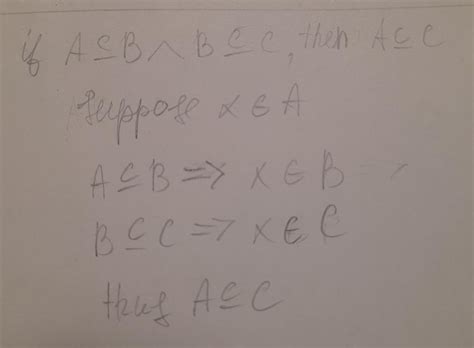 if A⊆B ∧ B⊆C, then A⊆C
suppose x∈A
A⊆B => x∈B =>
B⊆C => x∈C
thus A⊆C